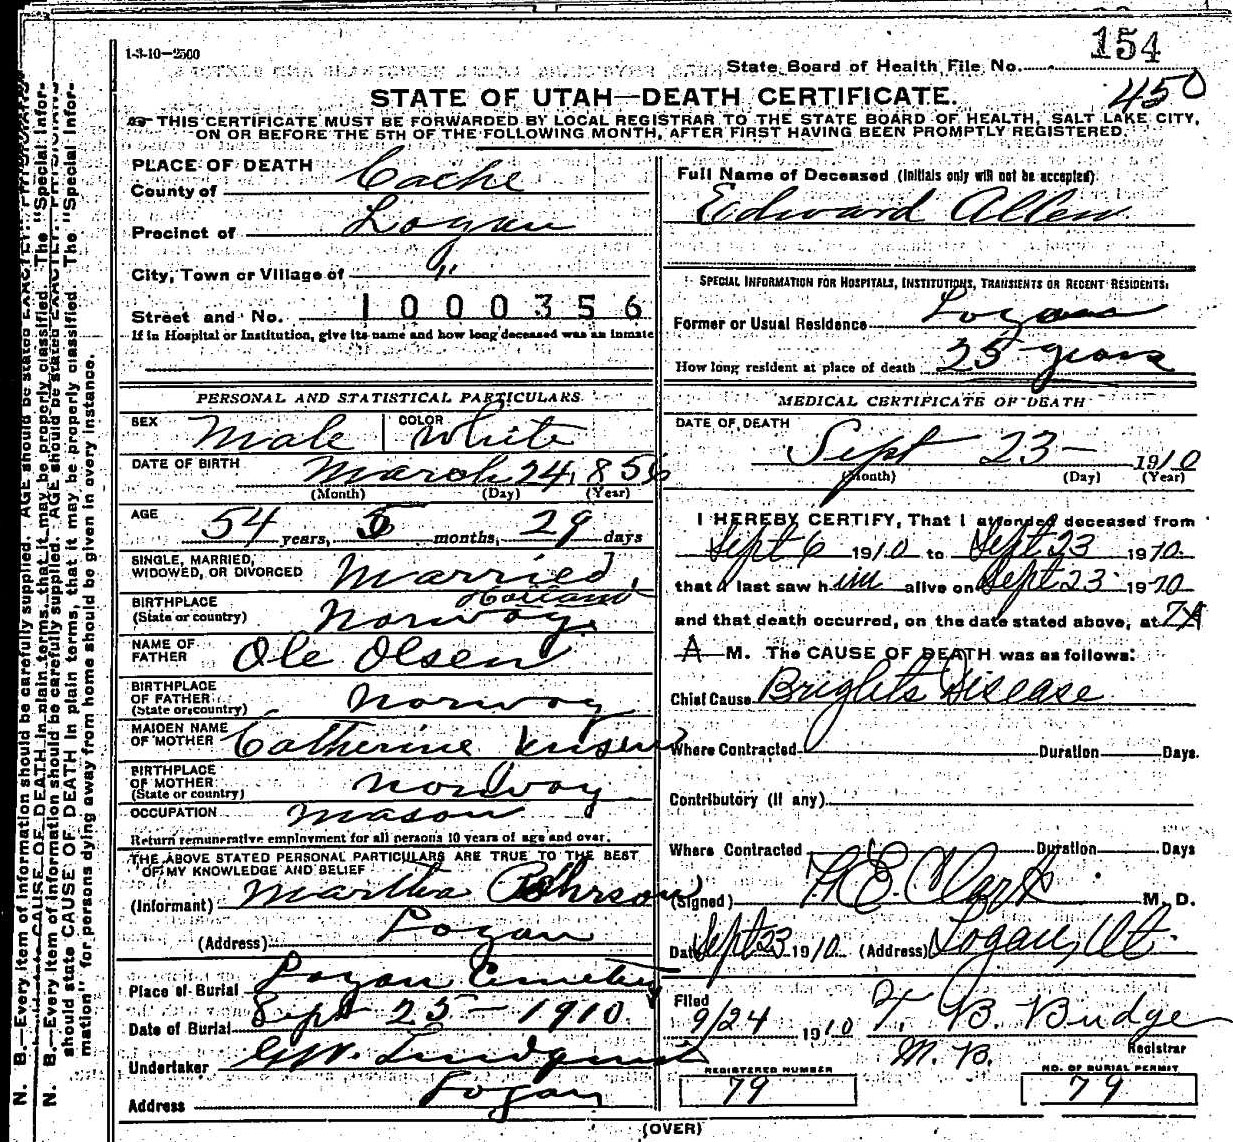 1-3-10—2500
154
State Board of Health File No.
450
STATE OF UTAH—DEATH CERTIFICATE.
THIS CERTIFICATE MUST BE FORWARDED BY LOCAL REGISTRAR TO THE STATE BOARD OF HEALTH, SALT LAKE CITY,
ON OR BEFORE THE 5TH OF THE FOLLOWING MONTH, AFTER FIRST HAVING BEEN PROMPTLY REGISTERED.
PLACE OF DEATH
County of Cache
Precinct of Logan
City, Town or Village of "
Street and No. 1000356
If in Hospital or Institution, give its name and how long deceased was an inmate
PERSONAL AND STATISTICAL PARTICULARS.
SEX Male COLOR White
DATE OF BIRTH March 24, 1856
(Month) (Day) (Year)
AGE
54 years, 5 months, 29 days
SINGLE, MARRIED,
WIDOWED, OR DIVORCED Married.
BIRTHPLACE
(State or country) Norway.
NAME OF
FATHER Ole Olsen
BIRTHPLACE
OF FATHER
(State or country) Norway
MAIDEN NAME
OF MOTHER Catherine
BIRTHPLACE
OF MOTHER
(State or country) Norway
OCCUPATION Mason
Return remunerative employment for all persons 10 years of age and over.
THE ABOVE STATED PERSONAL PARTICULARS ARE TRUE TO THE BEST
OF MY KNOWLEDGE AND BELIEF
(Informant) Martha
(Address) Logan
Place of Burial Logan Cemetery
Date of Burial Sept 25 - 1910.
Undertaker G.W. Lindquist
Address Logan
Full Name of Deceased (Initials only will not be accepted)
Edward Allen
SPECIAL INFORMATION FOR HOSPITALS, INSTITUTIONS, TRANSIENTS OR RECENT RESIDENTS.
Former or Usual Residence Logan
How long resident at place of death 25 years
MEDICAL CERTIFICATE OF DEATH
DATE OF DEATH
Sept 23 - 1910
(Month) (Day) (Year)
I HEREBY CERTIFY, That I attended deceased from
Sept 6 1910 to Sept 23 1910.
that I last saw him alive on Sept 23 1910
and that death occurred, on the date stated above, at 7
A M. The CAUSE OF DEATH was as follows:
Chief Cause Brights Disease
Where Contracted Duration Days.
Contributory (if any)
Where Contracted Duration Days
(Signed) M. D.
Date Sept 23 1910. (Address) Logan, Ut.
Filed
9/24 1910 T. B. Budge
M. D. Registrar
REGISTERED NUMBER
79
NO. OF BURIAL PERMIT
79
(OVER)
N. B.—Every item of information should be carefully supplied. AGE should be stated EXACTLY.
should state CAUSE OF DEATH in plain terms, that it may be properly classified. The "Special Infor-
mation" for persons dying away from home should be given in every instance.